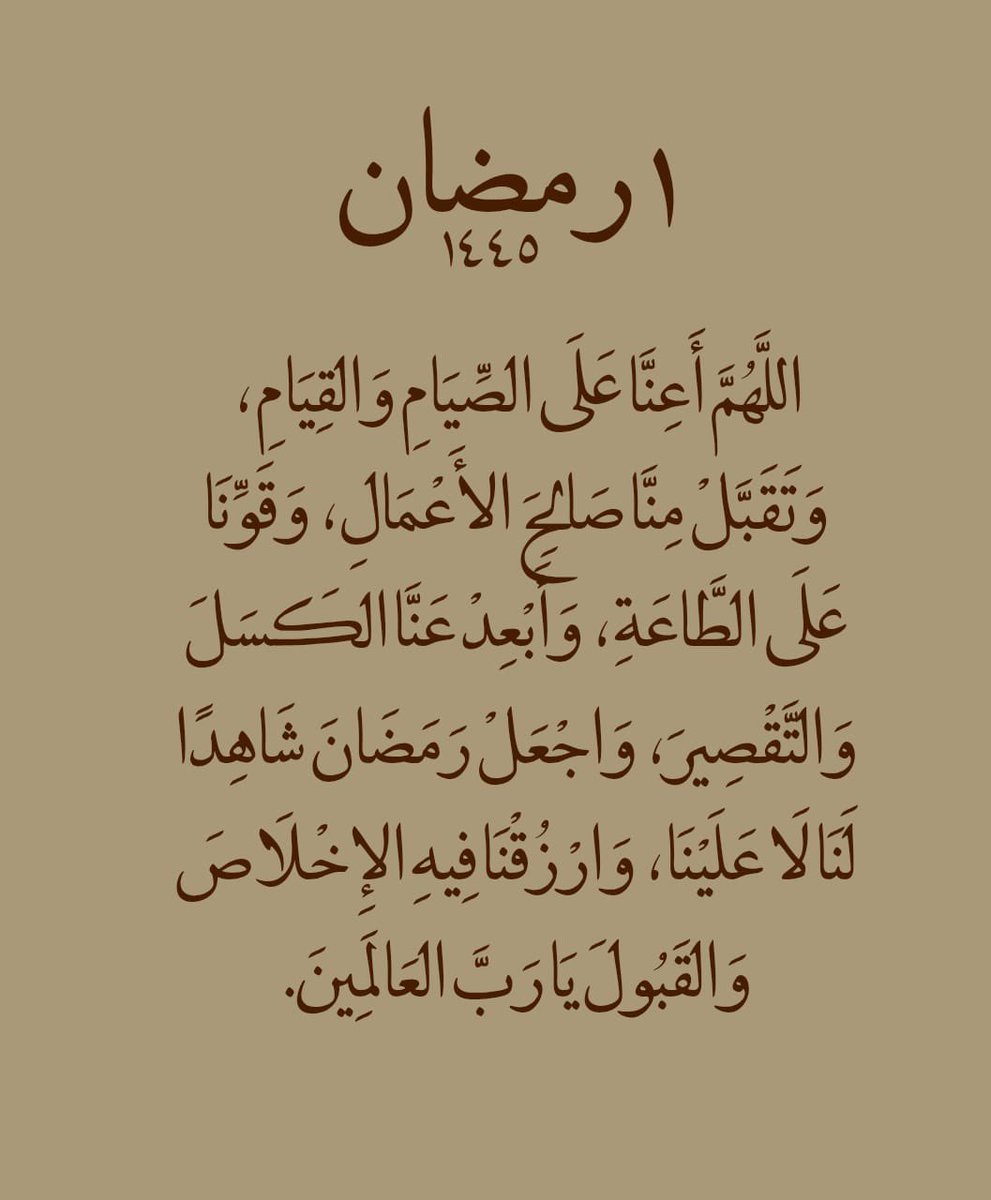 ١ رمضان
١٤٤٥
اللَّهُمَّ أَعِنَّا عَلَى الصِّيَامِ وَالقِيَامِ،
وَتَقَبَّلْ مِنَّا صَالِحَ الأَعْمَالِ، وَقَوِّنَا
عَلَى الطَّاعَةِ، وَأَبْعِدْ عَنَّا الكَسَلَ
وَالتَّقْصِيرَ، وَاجْعَلْ رَمَضَانَ شَاهِدًا
لَنَا لَا عَلَيْنَا، وَارْزُقْنَا فِيهِ الإِخْلَاصَ
وَالقَبُولَ يَا رَبَّ العَالَمِينَ.